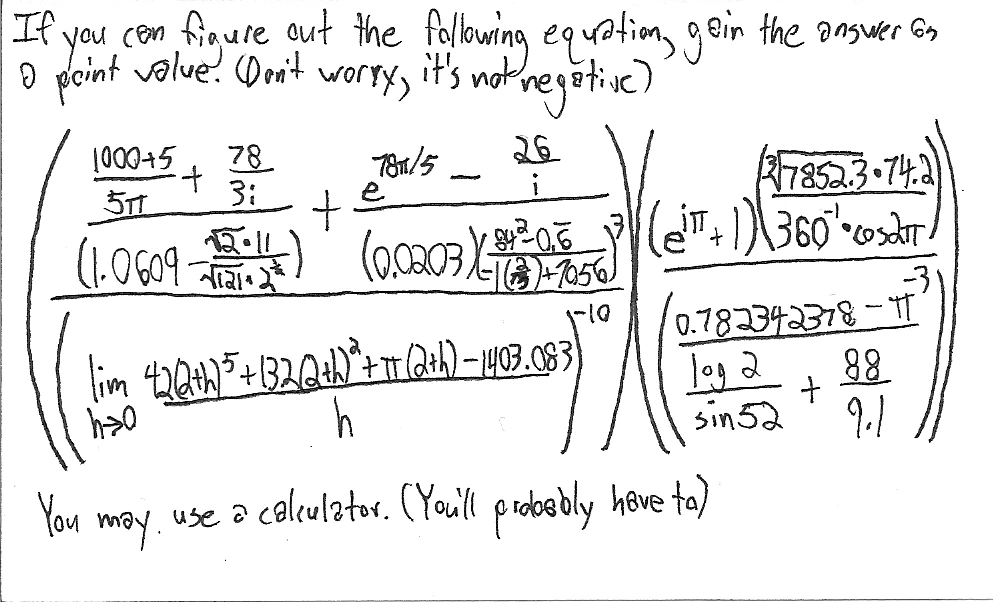 If you can figure out the following equation, gain the answer as
a point value. (Don't worry, it's not negative)
((((1000+5)/(5π) + 78/(3i))/(1.0609 - (√2·11)/(√121·2^(1/2))) + (e^(78π/5) - 26/i)/((0.0203)((84²-0.6)/(-1(2/73)+7056))^3))/(lim h→0 (42(2+h)^5+132(2+h)²+π(2+h)-1403.083)/h)^-10)((e^(iπ)+1)((∛7852.3·74.2)/(360^-1·cos2π))/((0.782342378-π^-3)/((log 2)/(sin52) + 88/9.1)))
You may use a calculator. (You'll probably have to)